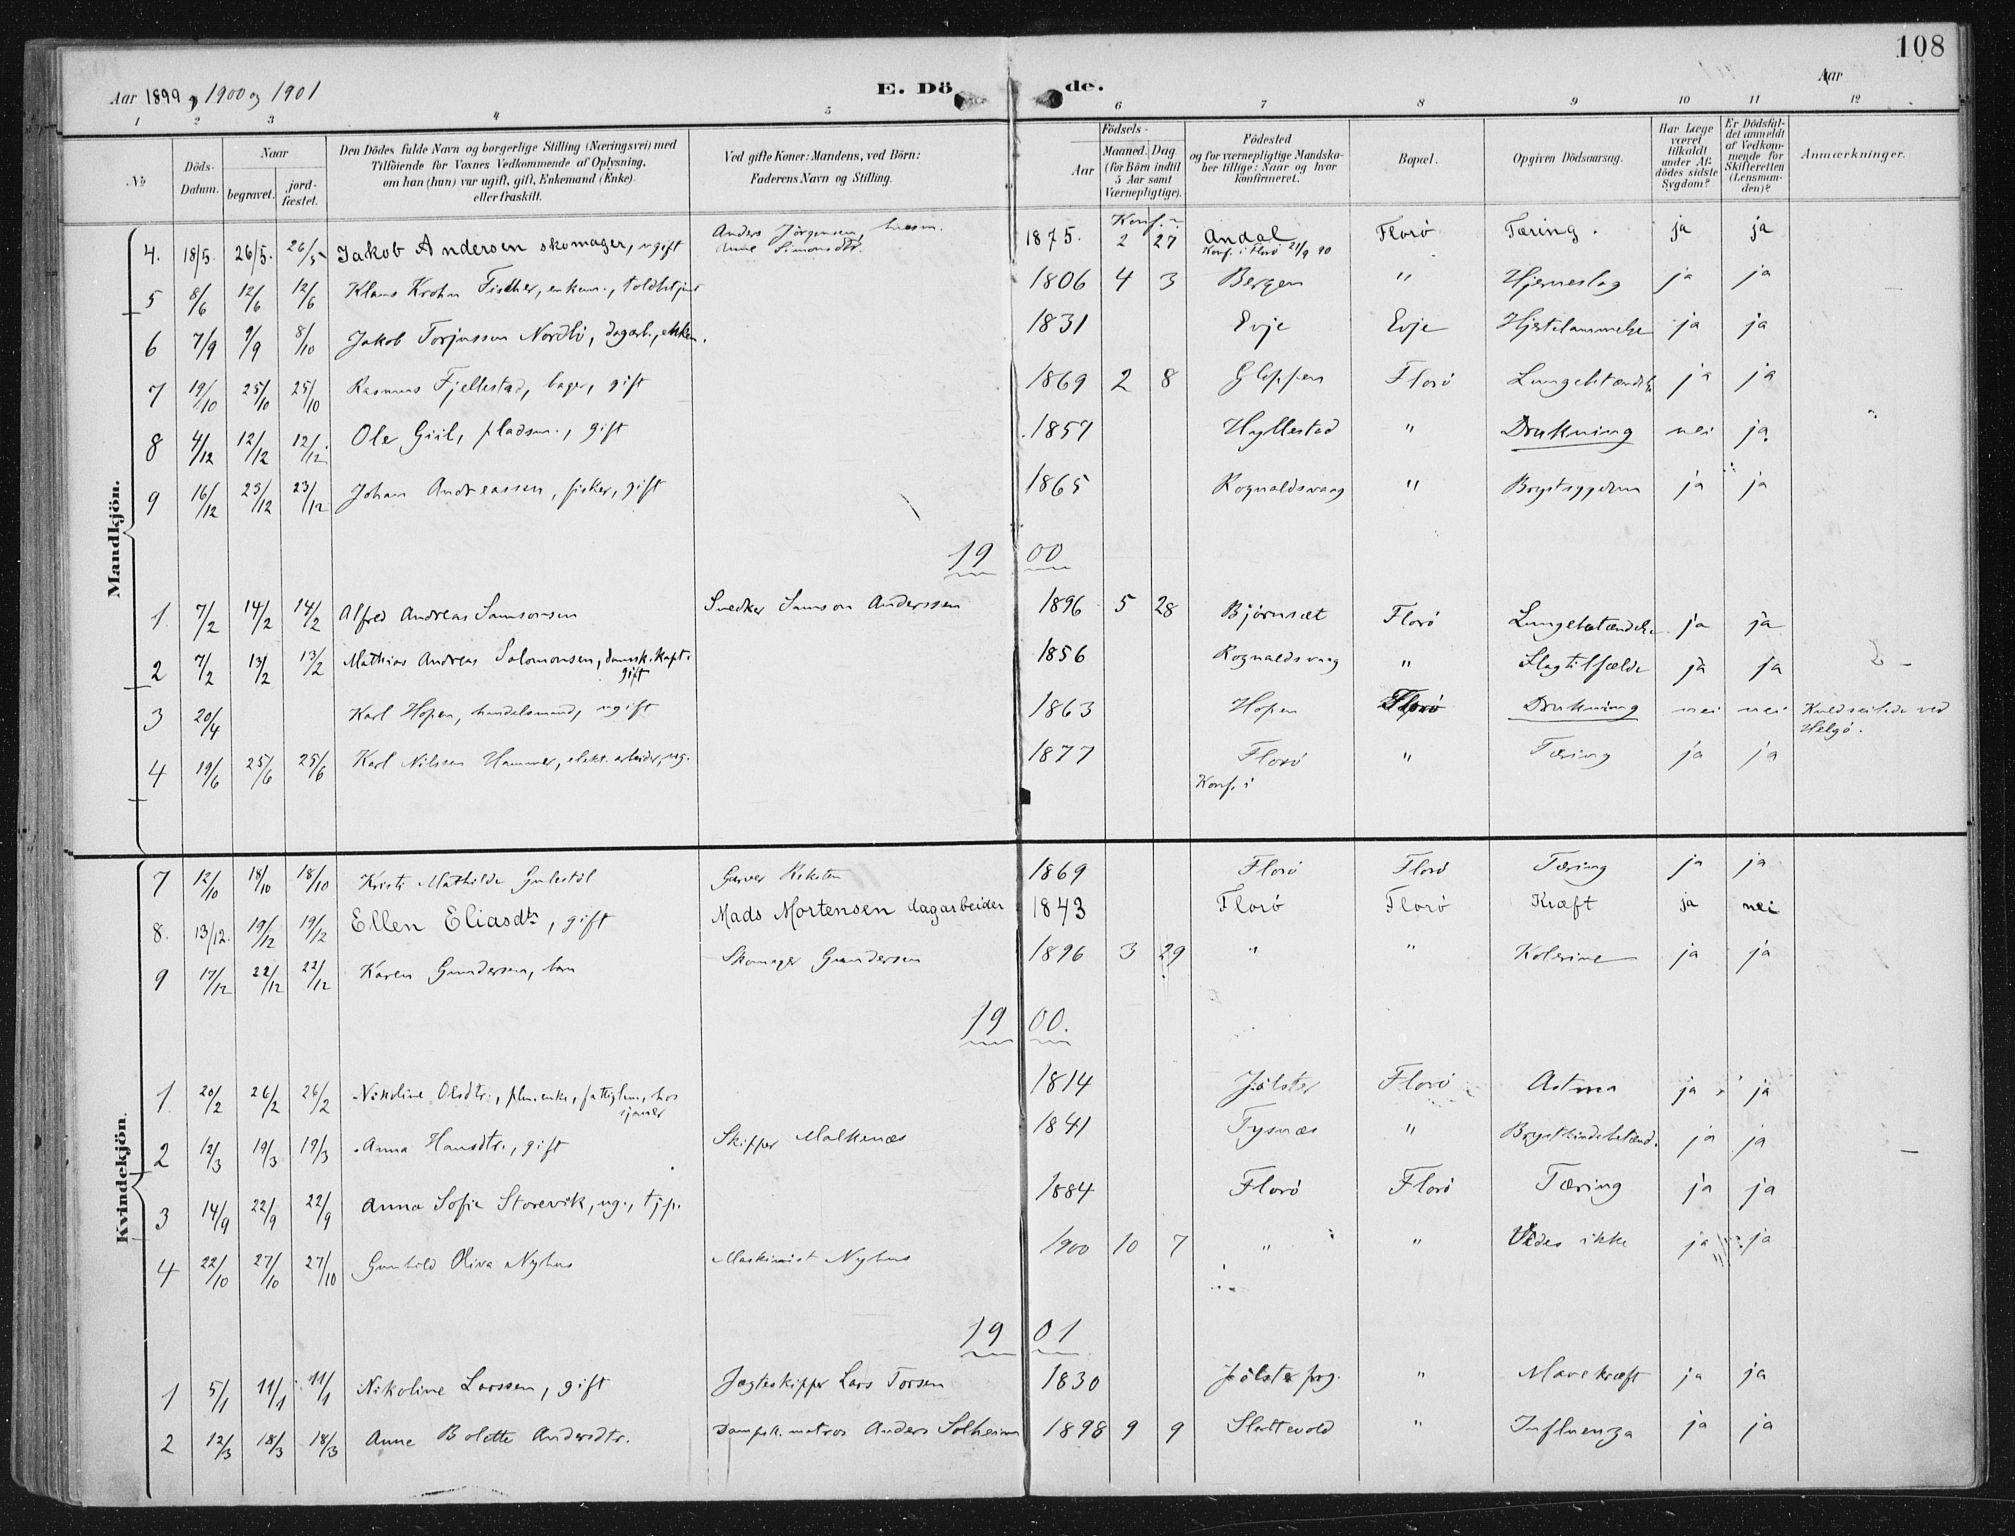 108
Aar 1899 og 1900 og 1901
E. Dö de.
Aar
1 2 3 4 5 6 7 8 9 10 11 12
No
Döds-Datum.
Naar
begravet.
jord-fæstet.
Den Dödes fulde Navn og borgerlige Stilling (Næringsvei) med
Tilföiende for Voxnes Vedkommende af Oplysning,
om han (hun) var ugift, gift, Enkemand (Enke)
eller fraskilt.
Ved gifte Koner: Mandens, ved Börn:
Faderens Navn og Stilling.
Födsels-
Aar
Maaned. Dag
(for Börn indtil
5 Aar samt
Værnepligtige).
Födested
og for værnepligtige Mandska-
ber tillige: Naar og hvor
konfirmeret.
Bopæl.
Opgiven Dödsaarsag.
Har Læge
været
tilkaldt
under Af-
dödes sidste
Sygdom?
Er Dödsfal-
det anmeldt
af Vedkom-
mende for
Skifteretten
(Lensman-
den)?
Anmærkninger.
Mandkjön.
4. 18/5 26/5. 26/5 Jakob Andersen skomager, ugift Anders Jørgensen, Simonsdtr. 1875. 2 27 Andal Konf. i Florö 21/9 90 Florö Tæring. ja ja
5 8/6 12/6 12/6 Klaus Krohn Fischer, enkem., 1806 4 3 Bergen " Hjerneslag ja ja
6 7/9 9/9 8/10 Jakob Torjussen Nordbö, dagarb., 1831 Evje Evje Hjertelammelse ja ja
7 19/10 25/10 25/10 Rasmus Fjellestad, bager, gift 1869 2 8 Gloppen Florö ja ja
8 4/12 12/12 12/12 Ole Giil, pladsm., gift 1857 Hyllestad " Drukning nei ja
9 16/12 23/12 23/12 Johan Andreassen, fisker, gift 1865 Rognaldsvaag " Brystsygdom ja ja
19 00
1 7/2 14/2 14/2 Alfred Andreas Samsonsen Snedker Samson Anderssen 1896 5 28 Bjørnsæt Florö ja ja
2 7/2 13/2 13/2 Mathias Andreas Salomonsen, dampsk.kapt. gift 1856 Rognaldsvaag " Slagtilfælde ja ja
3 20/4 Karl Hopen, handelsmand, ugift 1863 Hopen Florö Drukning nei nei Kuldseilede ved
Helgö.
4 19/6 25/6 25/6 Karl Nilssen Hammer, elekt. arbeider, ug. 1877 Florö Konf. i " Tæring ja ja
Kvindekjön
7 12/10 18/10 18/10 Kristi Mathilde Gulestöl Garver Reksten 1869 Florö Florö Tæring ja ja
8. 13/12. 19/12 19/12 Ellen Eliasdtr, gift Mads Mortensen dagarbeider 1843 Florö Florö Kræft ja nei
9 17/12 22/12 22/12 Karen Gundersen, barn Skomager Gundersen 1896 3 29 " " Kolerine ja ja
19 00.
1 20/2 26/2 26/2 Nikoline Olsdtr., plm.enke, fattiglem, 1814 Jölster Florö Astma ja ja
2 12/3 19/3 19/3 Anna Hansdtr., gift Skipper Malkenæs 1841 Tysnæs " ja ja
3 14/9 22/9 22/9 Anna Sofie Storevik, ug., tjp. 1884 Florö Florö Tæring ja ja
4 22/10 27/10 27/10 Gunhild Oliva Nyhus Maskinist Nyhus 1900 10 7 " " Vides ikke ja ja
19 01
1 5/1 11/1 11/1 Nikoline Larssen, gift Jægteskipper Lars Torsen 1830 Jölster prg. " Mavekræft ja ja
2 12/3 18/3 18/3 Anne Bolette Andersdtr. Dampsk.matros Anders Solheim 1898 9 9 Slettevold " Influenza ja ja